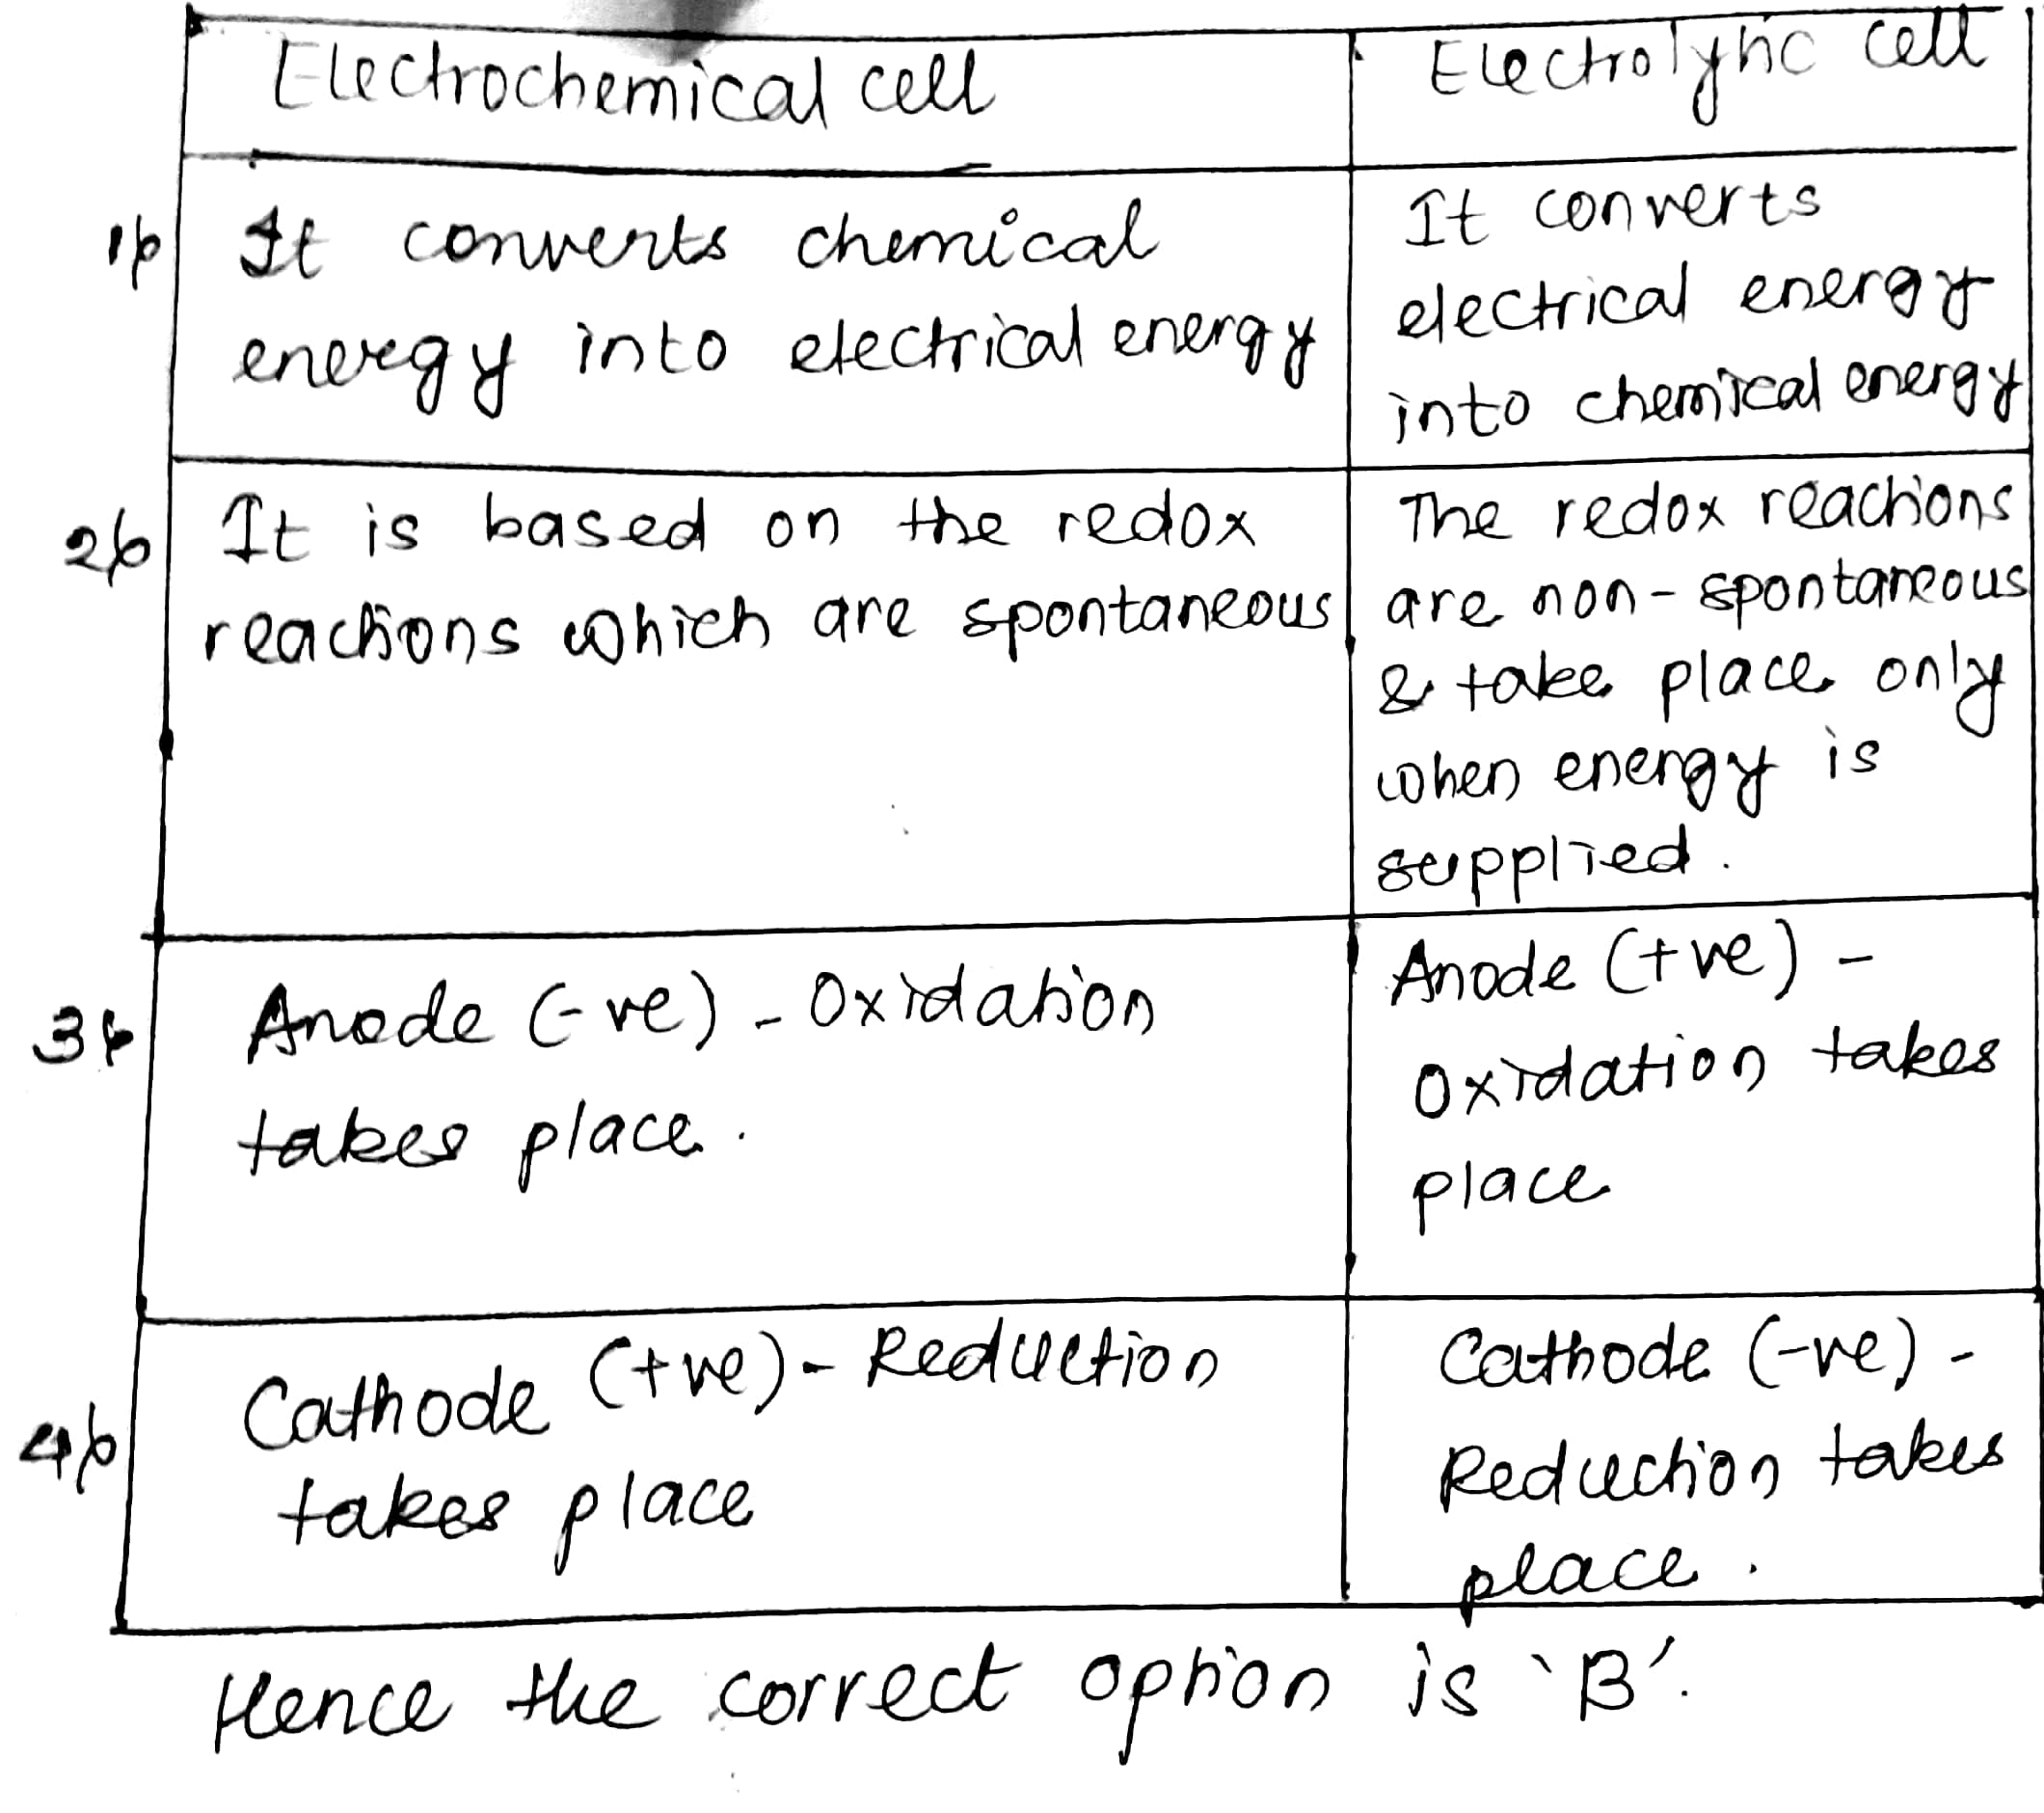 Electrochemical cell
Electrolytic cell
1)
It converts chemical
energy into electrical energy
It converts
electrical energy
into chemical energy
2)
It is based on the redox
reactions which are spontaneous
The redox reactions
are non-spontaneous
& take place only
when energy is
supplied.
3)
Anode (-ve) - Oxidation
takes place.
Anode (+ve) -
Oxidation takes
place
4)
Cathode (+ve) - Reduction
takes place
Cathode (-ve) -
Reduction takes
place.
Hence the correct option is 'B'.